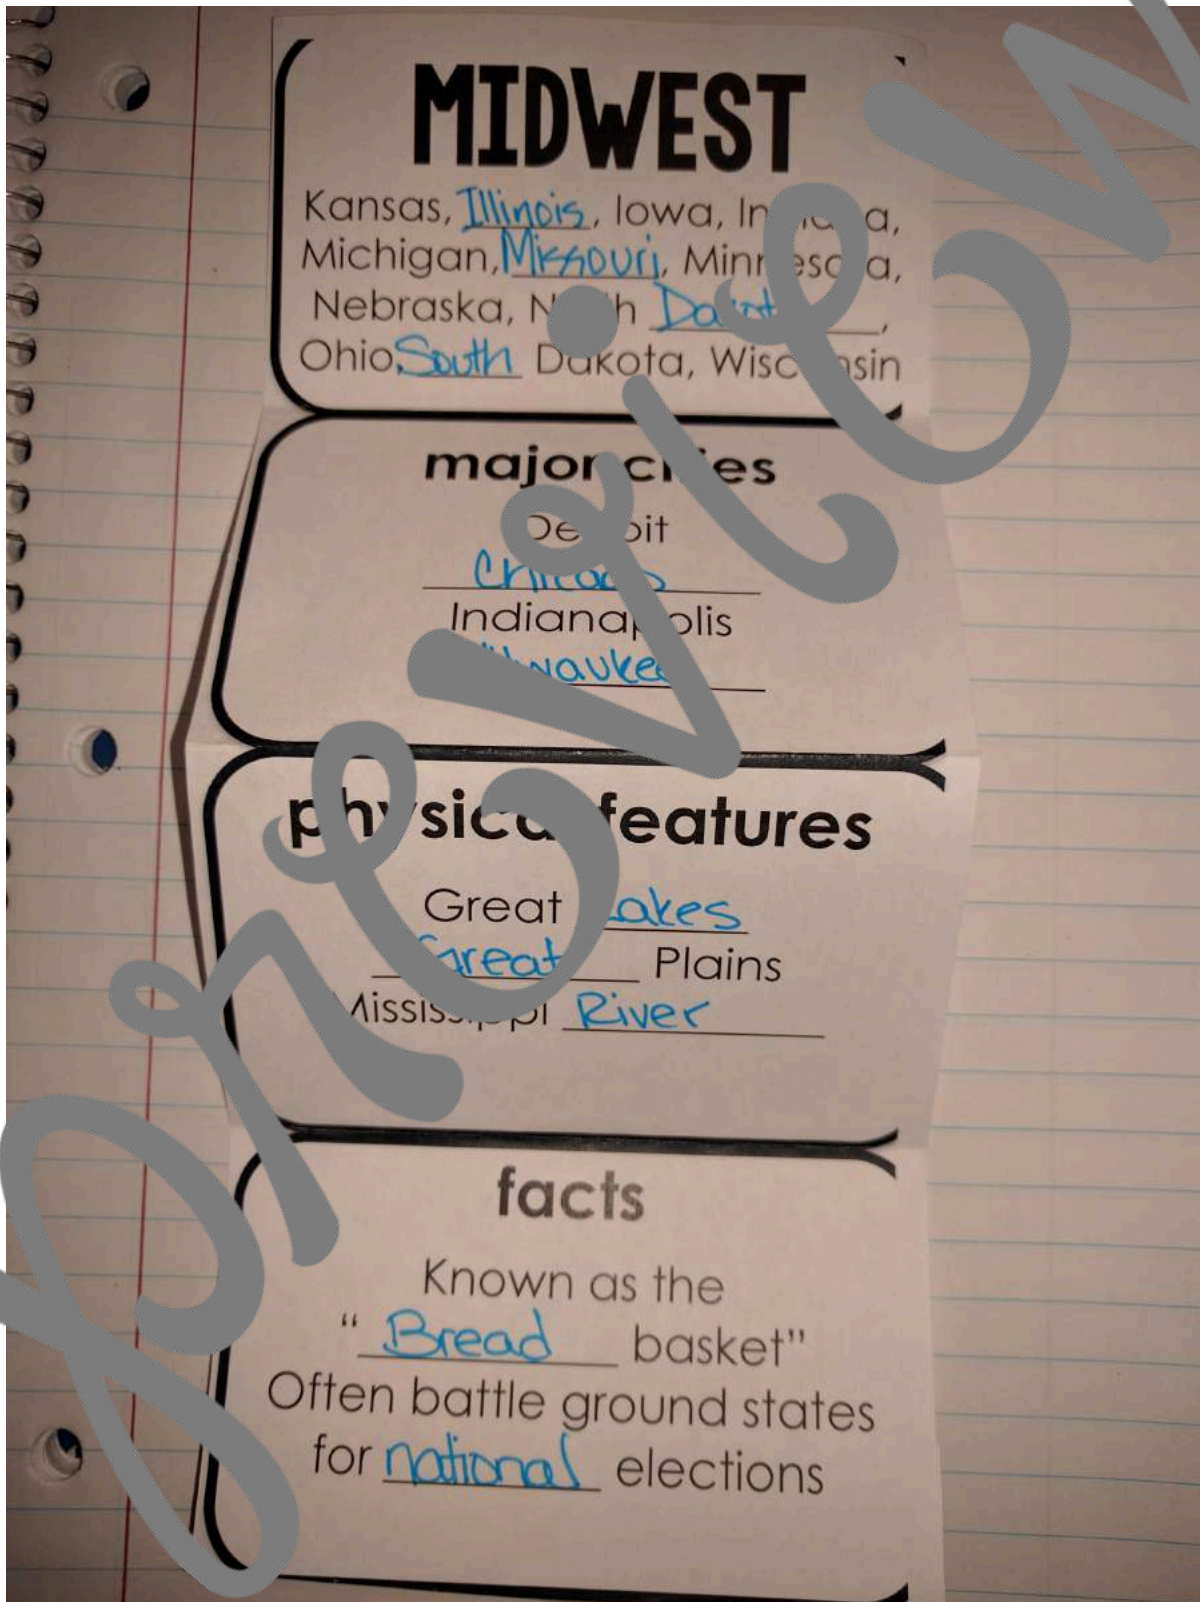 MIDWEST
Kansas, Illinois, Iowa, Indiana,
Michigan, Missouri, Minnesota,
Nebraska, North Dakota,
Ohio, South Dakota, Wisconsin
major cities
Detroit
Chicago
Indianapolis
Milwaukee
physical features
Great Lakes
Great Plains
Mississippi River
facts
Known as the
“Bread basket”
Often battle ground states
for national elections
preview